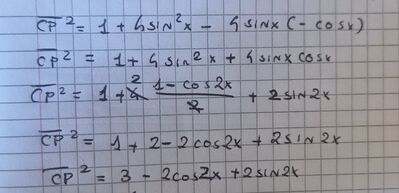 CP² = 1 + 4 sin²x − 4 sinx (− cosx)
CP² = 1 + 4 sin²x + 4 sinx cosx
CP² = 1 + 4 2 (1 − cos2x)/2 + 2 sin2x
CP² = 1 + 2 − 2cos2x + 2 sin2x
CP² = 3 − 2cos2x + 2 sin2x